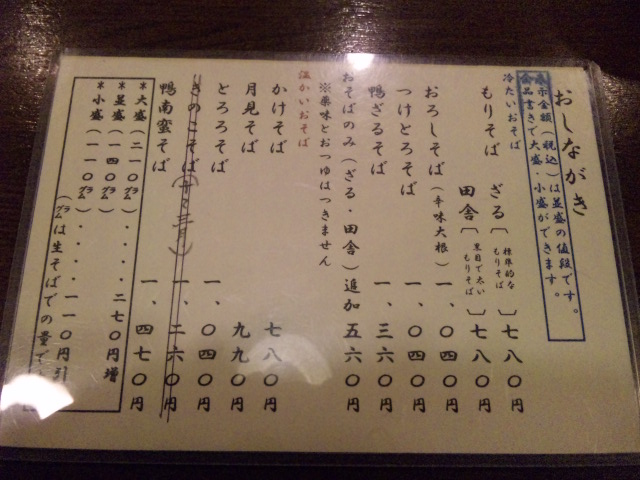 おしながき
表示金額（税込）は並盛の値段です。
全品書きで大盛・小盛ができます。
冷たいおそば
もりそば ざる〔標準的なもりそば〕七八〇円
田舎〔黒目で太いもりそば〕七八〇円
おろしそば（辛味大根）一、〇四〇円
つけとろそば 一、〇四〇円
鴨ざるそば 一、三六〇円
おそばのみ（ざる・田舎）追加 五六〇円
※薬味とおつゆはつきません
温かいおそば
かけそば 七八〇円
月見そば 九九〇円
とろろそば 一、〇四〇円
きのこそば 一、二六〇円
鴨南蛮そば 一、四七〇円
＊大盛（二一〇㌘）・・・・二七〇円増
＊並盛（一四〇㌘）
＊小盛（一一〇㌘）・・・・一一〇円引
（㌘は生そばでの量で